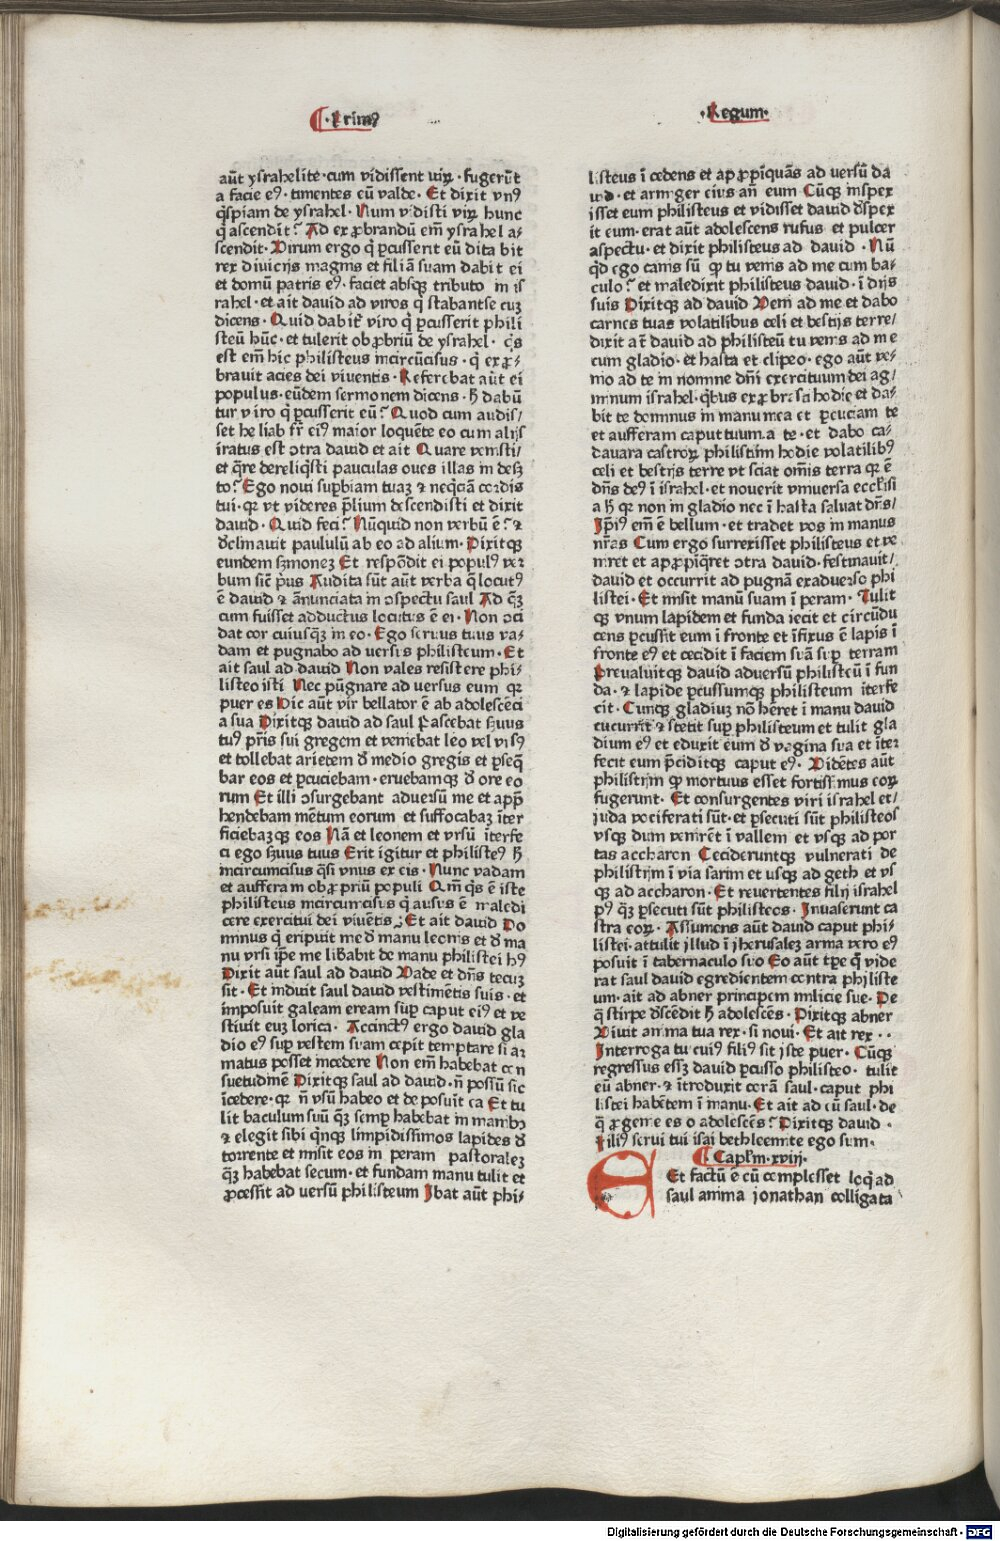 ·Primꝰ
·Regum·
aūt ysrahelite·cum vidissent viꝝ·fugerūt
a facie eꝰ·timentes eū valde·Et dixit vnꝰ
q̇spiam de ysrahel·Num vidisti viꝝ hunc
q̇ ascendit? Ad exꝓbrandū em̄ ysrahel a⸗
scendit·Virum ergo q̇ ꝑcusserit eū dita bit
rex diuicijs magnis et filiā suam dabit ei
et domū patris eꝰ·faciet absqꝫ tributo in is
rahel·et ait dauid ad viros q̇ stabantse cuꝫ
dicens·Quid dabit̄ viro q̇ ꝑcusserit phili
steū hūc·et tulerit obꝓbriū de ysrahel·q̇s
est em̄ hic philisteus incircūcisus·q̇ exꝓ⸗
brauit acies dei viuentis·Referebat aūt ei
populus·eūdem sermonem dicens·ħ dabū
tur viro q̇ ꝑcusserit eū? Quod cum audis/
set he liab fr̄ eiꝰ maior loquēte eo cum alijs
iratus est ɔtra dauid et ait Quare venisti/
et q̄re dereliq̇sti pauculas oues illas in desꝫ
to? Ego noui suꝑbiam tuaꝫ ⁊ neq̇ciā cordis
tui·qꝛ vt videres p̄lium descendisti et dixit
dauid·Quid feci? Nūquid non verbū ē? ⁊
d̄clinauit paululū ab eo ad alium·Dixitqꝫ
eundem s̄monez Et respōdit ei populꝰ ver
bum sic̄ pͥus Audita sūt aūt verba q̄ locutꝰ
ē dauid ⁊ ānunciata in ɔspectu saul Ad q̄ꝫ
cum fuisset adductus locutus ē ei·Non ɔci
dat cor cuiusq̄ꝫ in eo·Ego seruus tuus va⸗
dam et pugnabo ad versus philisteum·Et
ait saul ad dauid Non vales resistere phi⸗
listeo isti Nec pūgnare ad versus eum qꝛ
puer es Hic aūt vir bellator ē ab adolescēci
a sua Dixitqꝫ dauid ad saul Pascebat s̄uus
tuꝰ pr̄is sui gregem et veniebat leo vel vrsꝰ
et tollebat arietem d̄ medio gregis et ꝑseq̄
bar eos et ꝑcuciebam·eruebamqꝫ d̄ ore eo
rum Et illi ɔsurgebant aduersū me et app̄
hendebam mētum eorum et suffocabaꝫ īter
ficiebaꝫqꝫ eos Nā et leonem et vrsū īterfe
ci ego s̄uus tuus Erit igitur et philisteꝰ ħ
incircumcisus q̄si vnus ex eis·Nunc vadam
et aufferam obꝓpriū populi Qm̄ q̇s ē iste
philisteus incircumcisus q̇ ausus ē maledi
cere exercitui dei viuētis·Et ait dauid Do
minus q̇ eripuit me d̄ manu leonis et d̄ ma
nu vrsi ip̄e me lib̄abit de manu philistei hꝰ
Dixit aūt saul ad dauid Vade et dn̄s tecuꝫ
sit·Et induit saul dauid vestimētis suis·et
imposuit galeam eream suꝑ caput eiꝰ et ve
stiuit euꝫ lorica·Accinctꝰ ergo dauid gla
dio eꝰ suꝑ vestem suam cepit temptare si ar
matus posset incedere Non em̄ habebat con
suetudinē Dixitqꝫ saul ad dauid·n̄ possū sic
īcedere·qꝛ n̄ vsū habeo et deposuit ea Et tu
lit baculum suū q̄ꝫ semꝑ habebat in manibꝫ
⁊ elegit sibi q̇nqꝫ limpidissimos lapides d̄
torrente et misit eos in peram pastoralez
q̄ꝫ habebat secum·et fundam manu tulit et
ꝓcessit ad versū philisteum Ibat aūt phi⸗
listeus ī cedens et apꝓpīquās ad versū da
uid·et armiger eius an̄ eum Cūqꝫ inspex
isset eum philisteus et vidisset dauid d̄spex
it eum·erat aūt adolescens rufus et pulcer
aspectu·et dixit philisteus ad dauid·Nū
q̇d ego canis sū ꝙ tu venis ad me cum ba⸗
culo? et maledixit philisteus dauid·ī dijs
suis Dixitqꝫ ad dauid Veni ad me et dabo
carnes tuas volatilibus celi et bestijs terre/
dixit aūt dauid ad philisteū tu venis ad me
cum gladio·et hasta et clipeo·ego aūt ve⸗
nio ad te in nomine dn̄i exercituum dei ag/
minum israhel·q̇bus exꝓbrasci hodie et da/
bit te dominus in manu mea et ꝑcuciam te
et aufferam caput tuum a te·et dabo ca⸗
dauara castroꝝ philistiim hodie volatilibꝰ
celi et bestijs terre vt sciat omīs terra qꝛ ē
dn̄s deꝰ ī israhel·et nouerit vniuersa eccl̄esi
a ħ qꝛ non in gladio nec ī hasta saluat dn̄s/
Ip̄iꝰ em̄ ē bellum·et tradet vos in manus
nr̄as Cum ergo surrexisset philisteus et ve
niret et apꝓpīq̄ret ɔtra dauid·festinauit/
dauid et occurrit ad pugnā exaduerso phi
listei·Et misit manū suam ī peram·Tulit
qꝫ vnum lapidem et funda iecit et circūdu
cens ꝑcussit eum ī fronte et īfixus ē lapis ī
fronte eꝰ et cecidit ī faciem suā suꝑ terram
Preualuitqꝫ dauid aduersū philisteū ī fun
da·⁊ lapide ꝑcussumqꝫ philisteum iterfe
cit·Cumqꝫ gladiuꝫ nō hēret ī manu dauid
cucurrit ⁊ stetit suꝑ philisteum et tulit gla
dium eꝰ et eduxit eum d̄ vagina sua et īter
fecit eum p̄ciditqꝫ caput eꝰ·Vidētes aūt
philistijm ꝙ mortuus esset fortissimus eoꝝ
fugerunt·Et consurgentes viri israhel et/
iuda vociferati sūt·et ꝑsecuti sūt philisteos
vsqꝫ dum venirēt ī vallem et vsqꝫ ad por
tas accharon Cecideruntqꝫ vulnerati de
philistijm ī via sarim et usqꝫ ad geth et vs
qꝫ ad accharon·Et reuertentes filij israhel
pꝰ q̄ꝫ ꝑsecuti sūt philisteos·Inuaserunt ca
stra eoꝝ·Assumens aūt dauid caput phi⸗
listei·attulit illud ī jherusalez arma vero eꝰ
posuit ī tabernaculo suo Eo aūt tꝑe q̇ vide
rat saul dauid egredientem contra philiste
um·ait ad abner principem milicie sue·De
q̄ stirpe d̄scēdit ħ adolescēs·Dixitqꝫ abner
Viuit anima tua rex·si noui·Et ait rex··
Interroga tu cuiꝰ filiꝰ sit iste puer·Cūqꝫ
regressus essꝫ dauid ꝑcusso philisteo·tulit
eū abner·⁊ ītroduxit corā saul·caput phi
listei habētem ī manu·Et ait ad eū saul·de
q̄ ꝓgenie es o adolescēs? Dixitqꝫ dauid·
Filiꝰ serui tui isai bethleemite ego sum·
·Capl̄m·xviij·
Et factū ē cū complesset loq̇ ad
saul anima jonathan colligata
Digitalisierung gefördert durch die Deutsche Forschungsgemeinschaft - DFG